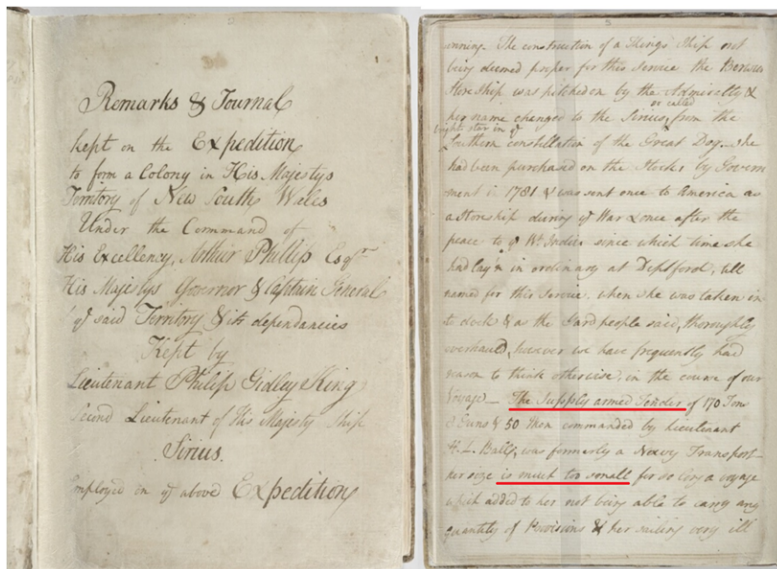 1
Remarks & Journal
kept on the Expedition
to form a Colony in His Majestys
Territory of New South Wales
Under the Command of
His Excellency, Arthur Phillip Esqr
His Majestys Governor & Captain General
of said Territory & its dependancies
Kept by
Lieutenant Philip Gidley King
Second Lieutenant of His Majesty Ship
Sirius.
employed on ye above Expedition
The construction of a Kings Ship not
being deemed proper for this Service the Berwick
Store Ship was pitched on by the Admiralty &
or called
her name changed to the Sirius, from the
bright star in ye
Southern constellation of the Great Dog. She
had been purchased on the Stocks by Govern
ment in 1781 & was sent once to America as
a Storeship during ye War & once after the
peace to ye Wt Indies since which time she
had lay'n in ordinary at Deptford, till
named for this Service, when she was taken in
to dock & as the Yard people said, thoroughly
overhauld, however we have frequently had
reason to think otherwise, in the course of our
Voyage — The Supply armed Tender of 170 Tons
Guns & 50 Men commanded by Lieutenant
H. L. Ball, was formerly a Navy Transport
her size is much too small for so long a voyage
which added to her not being able to carry any
quantity of Provisions & her sailing very ill